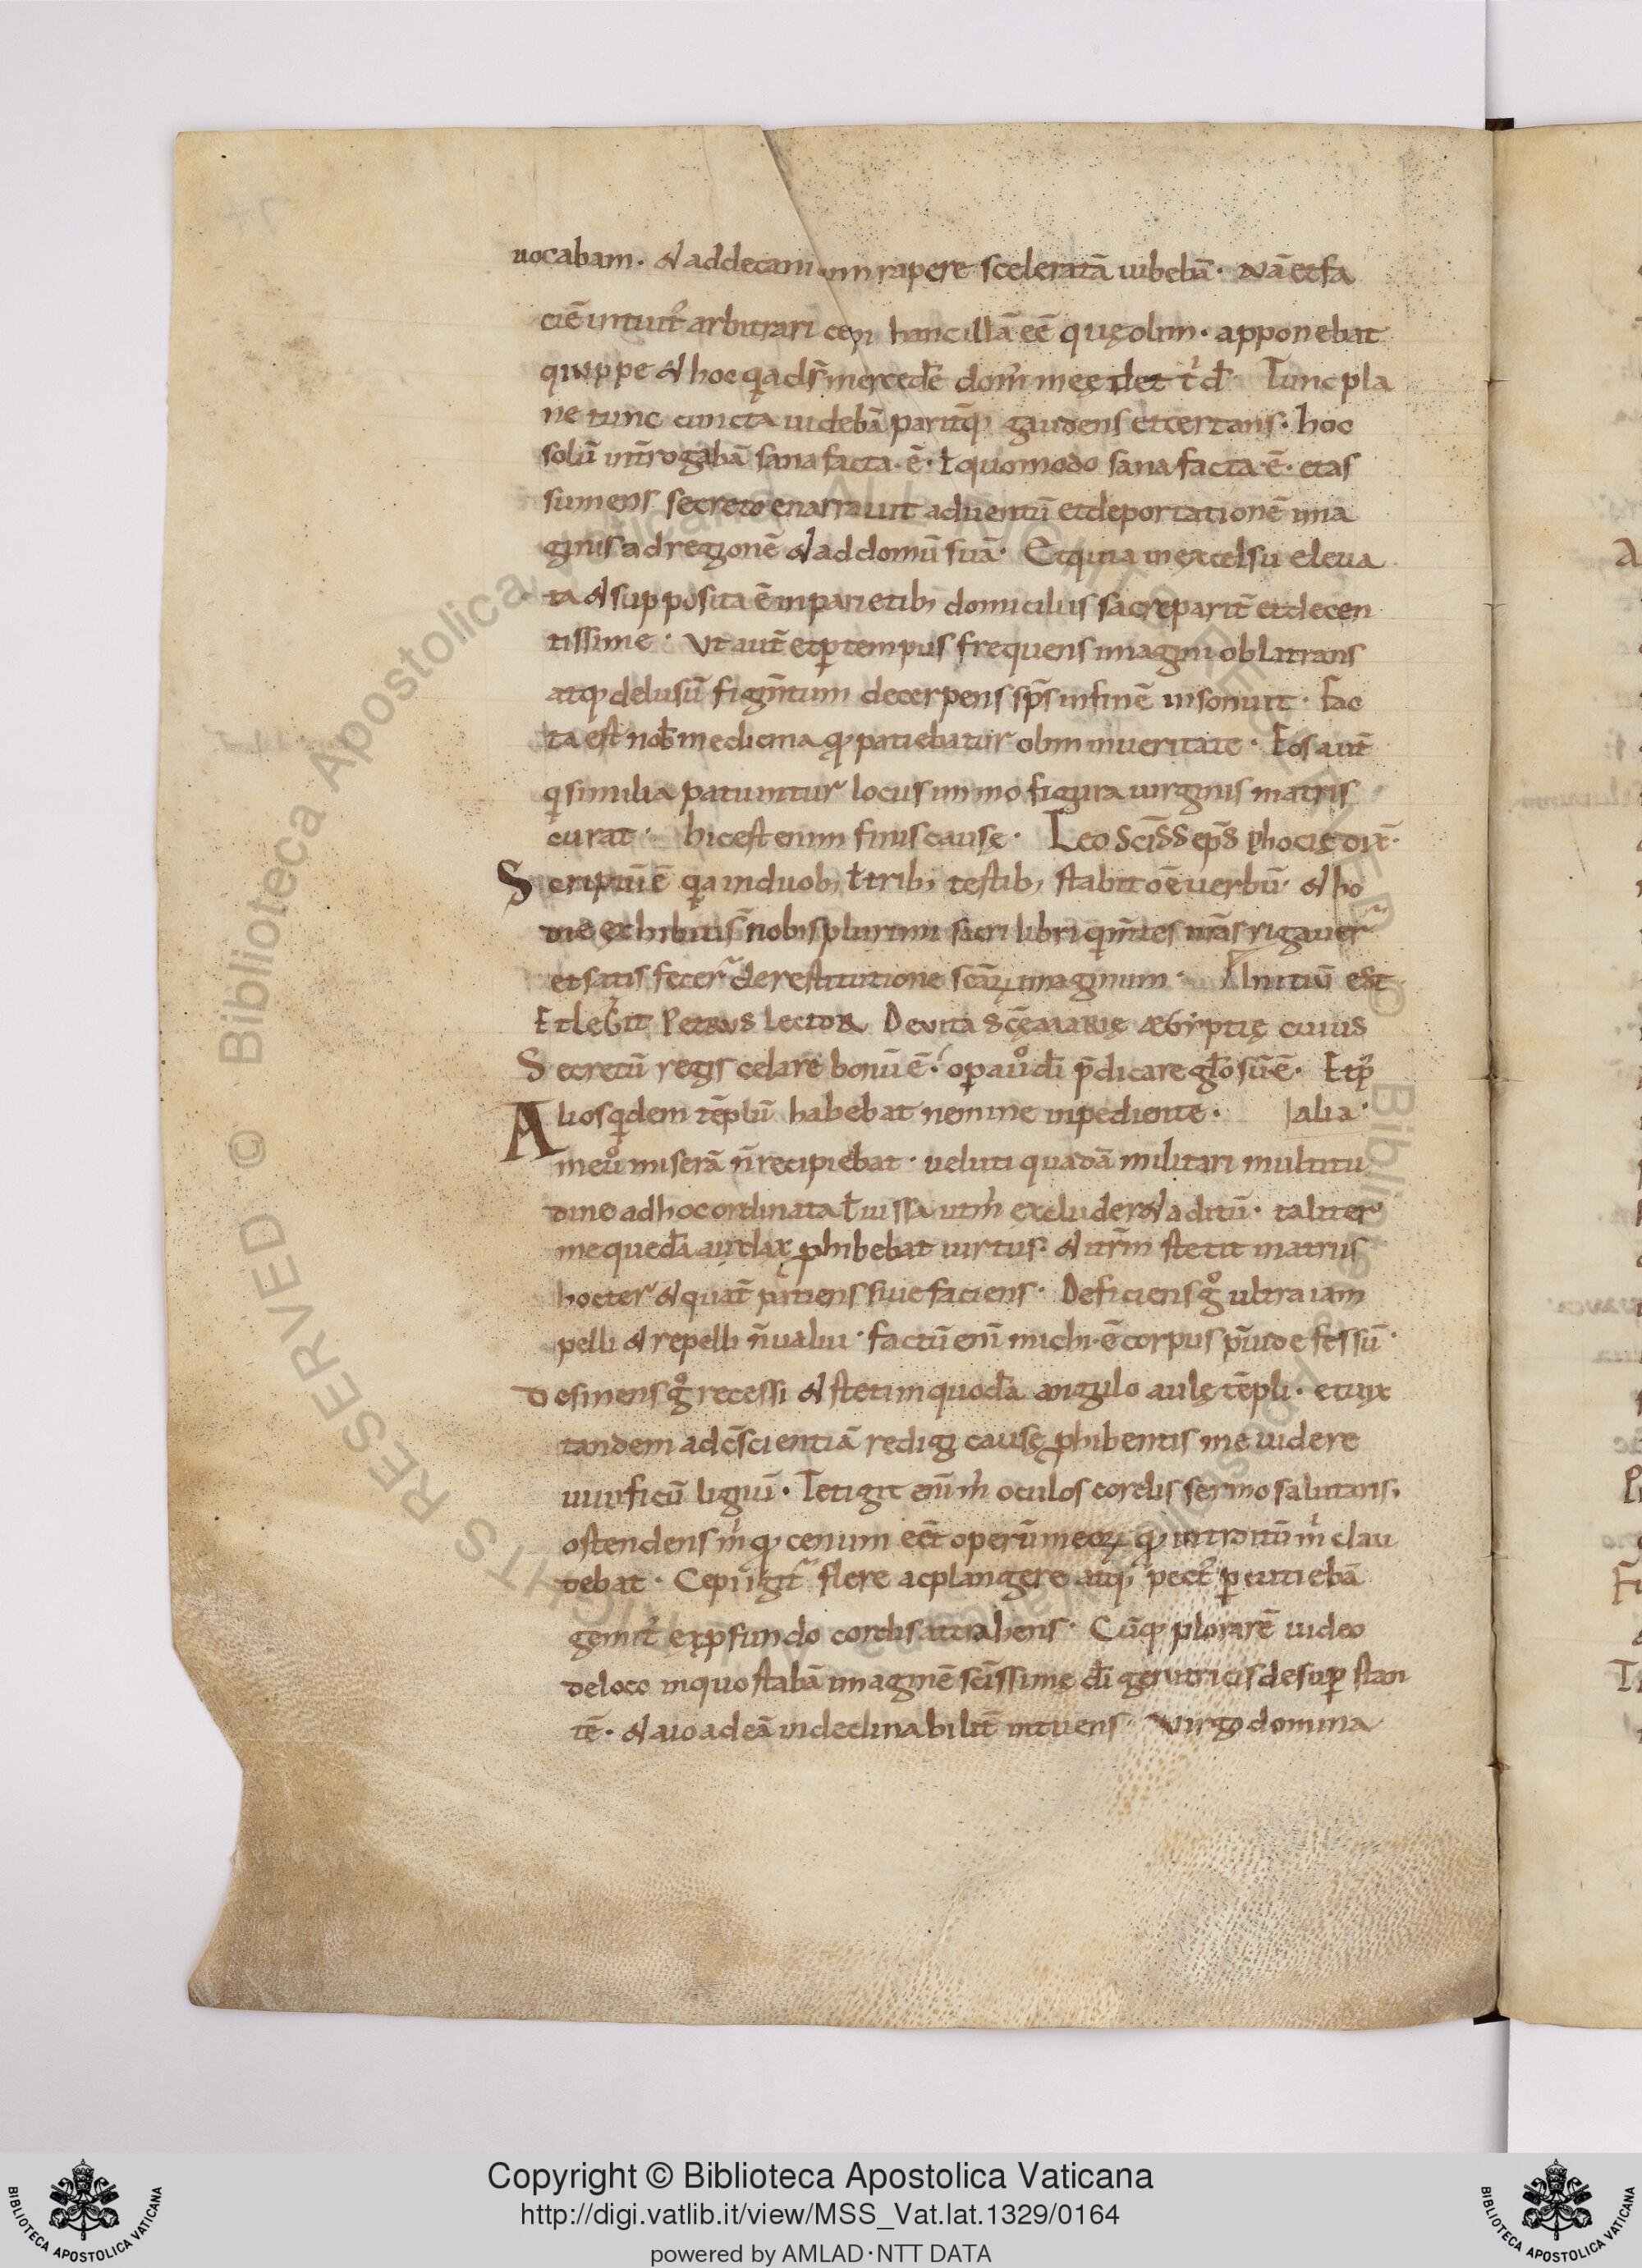 uocabam. & ad decanicum rapere sceleratā iubebā. Nā et fa
ciē intuit᷒ arbitrari cepi hanc illā eē quę olim. apponebat
quippe & hoc qa dr̄ mercedē dom̄ meę det t̄ d̄s Tunc pla
ne tunc cuncta uidebā paritq; gaudens et certans. hoc
solū int̄rogabā sana facta. ē. ł quomodo sana facta. ē. et as
sumens secreto enarrauit aduentū et deportationē ima
ginis ad regionē & ad domū suā. Et quia in excelsu eleua
ta & supposita ē in parietib; domiciliis sacre parit̄ et decen
tissime. Ut aut̄ et p tempus frequens imagini oblatrans
atq; delusū figm̄tum decerpens sp̄s in finē insonuit. Fac
ta est nob̄ medicina q; patiebatur olim in ueritate. Eos aut̄
q similia patiuntur locus immo figura uirginis matris
curat. hic est enim finis cause. Leo sc̄iss ep̄s phocie dix̄.
Scriptū ē qa in duob; ł trib; testib; stabit oē uerbū. & ho
die exhibiti s̄ nobis plurimi sacri libri q m̄tes nr̄as rigauer
et satis fecer de restitutione sc̄aꝝ imaginum. Initiū est
Et legit Petrus lector De uita scę Marię ægyptię cuius
Secretū regis celare bonū ē. opa aū dī p̄dicare gl̄osū. ē. Et p᷒
Alios qdem tēplū habebat nemine inpediente. | alia.
me ū miserā n̄ recipiebat. ueluti quadā militari multitu
dine ad hoc ordinata ł iussa ut m̄ excluder& aditū. taliter
me quedā audax phibebat uirtus. & iter̄m stetit in atriis
hoc ter & quat̄ patiens siue faciens. Deficiens g̊ ultra iam
pelli & repelli n̄ ualui. factū enī michi. ē corpus p̄ uide fessū.
Desinens g̊ recessi & steti in quodā angulo aulę tēpli. et uix
tandem ad c̄scientiā redigi causę phibentis me uidere
uiuificū lignū. Tetigit enī m̄ oculos cordis sermo salutaris,
ostendens m̄ q; cenum eēt operū meoꝝ q; introitū m̄ clau
debat. Cepi igit᷒ flere ac plangere atq; pect᷒ pcutiebā
gemit᷒ ex pfundo cordis attrahens. Cūq; plorarē uideo
de loco in quo stabā imaginē sc̄issime dī genitricis desup stan
tē. & aio ad eā indeclinabilit̄ intuens. Virgo domina
Copyright © Biblioteca Apostolica Vaticana
http://digi.vatlib.it/view/MSS_Vat.lat.1329/0164
powered by AMLAD · NTT DATA
BIBLIOTECA APOSTOLICA VATICANA
BIBLIOTECA APOSTOLICA VATICANA